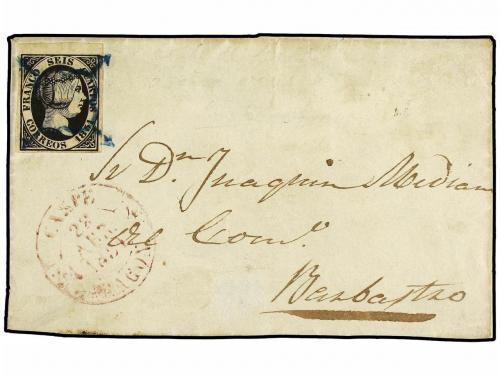 FRANCO SEIS CUARTOS
CORREOS 1851
Sr Dn Joaquin Median
del Comº
Barbastro
CASPE
ARAGON